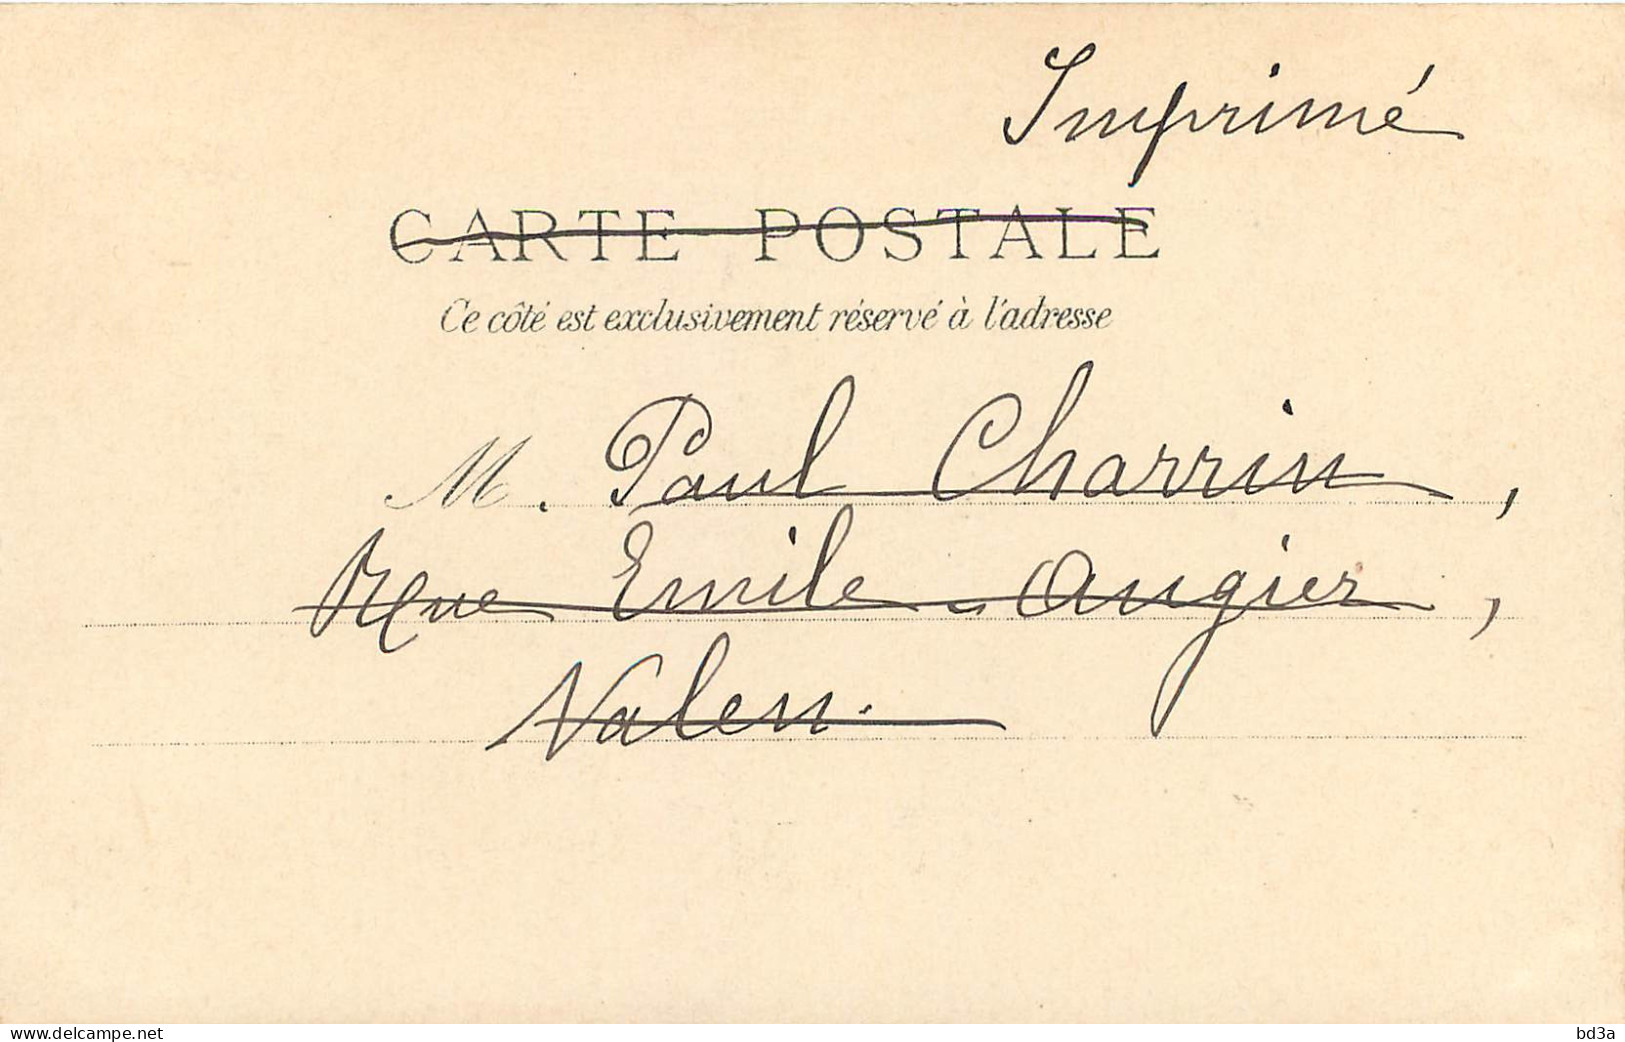 Imprimé
CARTE POSTALE
Ce côté est exclusivement réservé à l'adresse
M. Paul Charrin,
Rue Emile-Augier,
Valen.
www.delcampe.net
bd3a